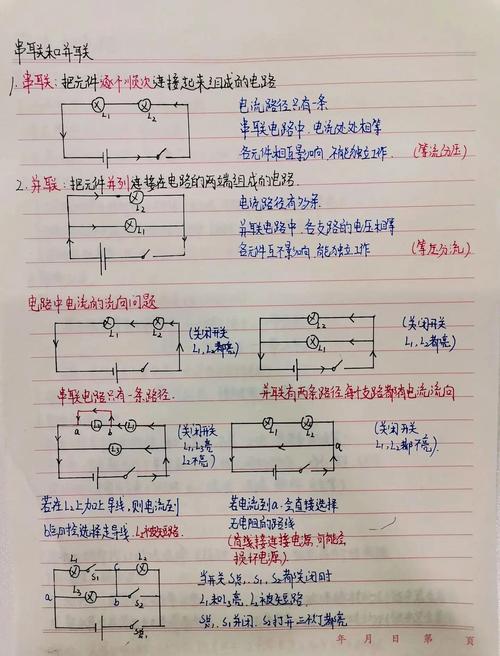 串联和并联
1. 串联：把元件逐个顺次连接起来组成的电路
L₁ L₂
电流路径只有一条
串联电路中，电流处处相等
各元件相互影响，不能独立工作 （等流分压）
2. 并联：把元件并列连接在电路的两端组成的电路.
L₂
L₁
电流路径有多条
并联电路中，各支路的电压相等
各元件互不影响，能独立工作 （等压分流）
电路中电流的流向问题
L₁ L₂
（关闭开关
L₁、L₂都亮）
L₂
L₁
（关闭开关
L₁、L₂都亮）
串联电路只有一条路径.
并联有两条路径，每个支路都有电流流向
a L₂ b L₁
L₃
（关闭开关
L₁、L₃亮
L₂不亮）
L₁ L₂
a
（关闭开关
L₁、L₂都不亮）
若在L₂上加上导线，则电流走到
b时，会选择走导线，L₂被短路.
若电流到a，会直接选择
无电阻的路线
（直线接连接电源，可能会
损坏电源）
L₁ S₁ c L₂
a L₃ b S₂
S总
当开关S总、S₁、S₂都关闭时
L₁和L₃亮，L₂被短路.
S总、S₁并闭、S₂打开三个灯都亮
年 月 日 第 页